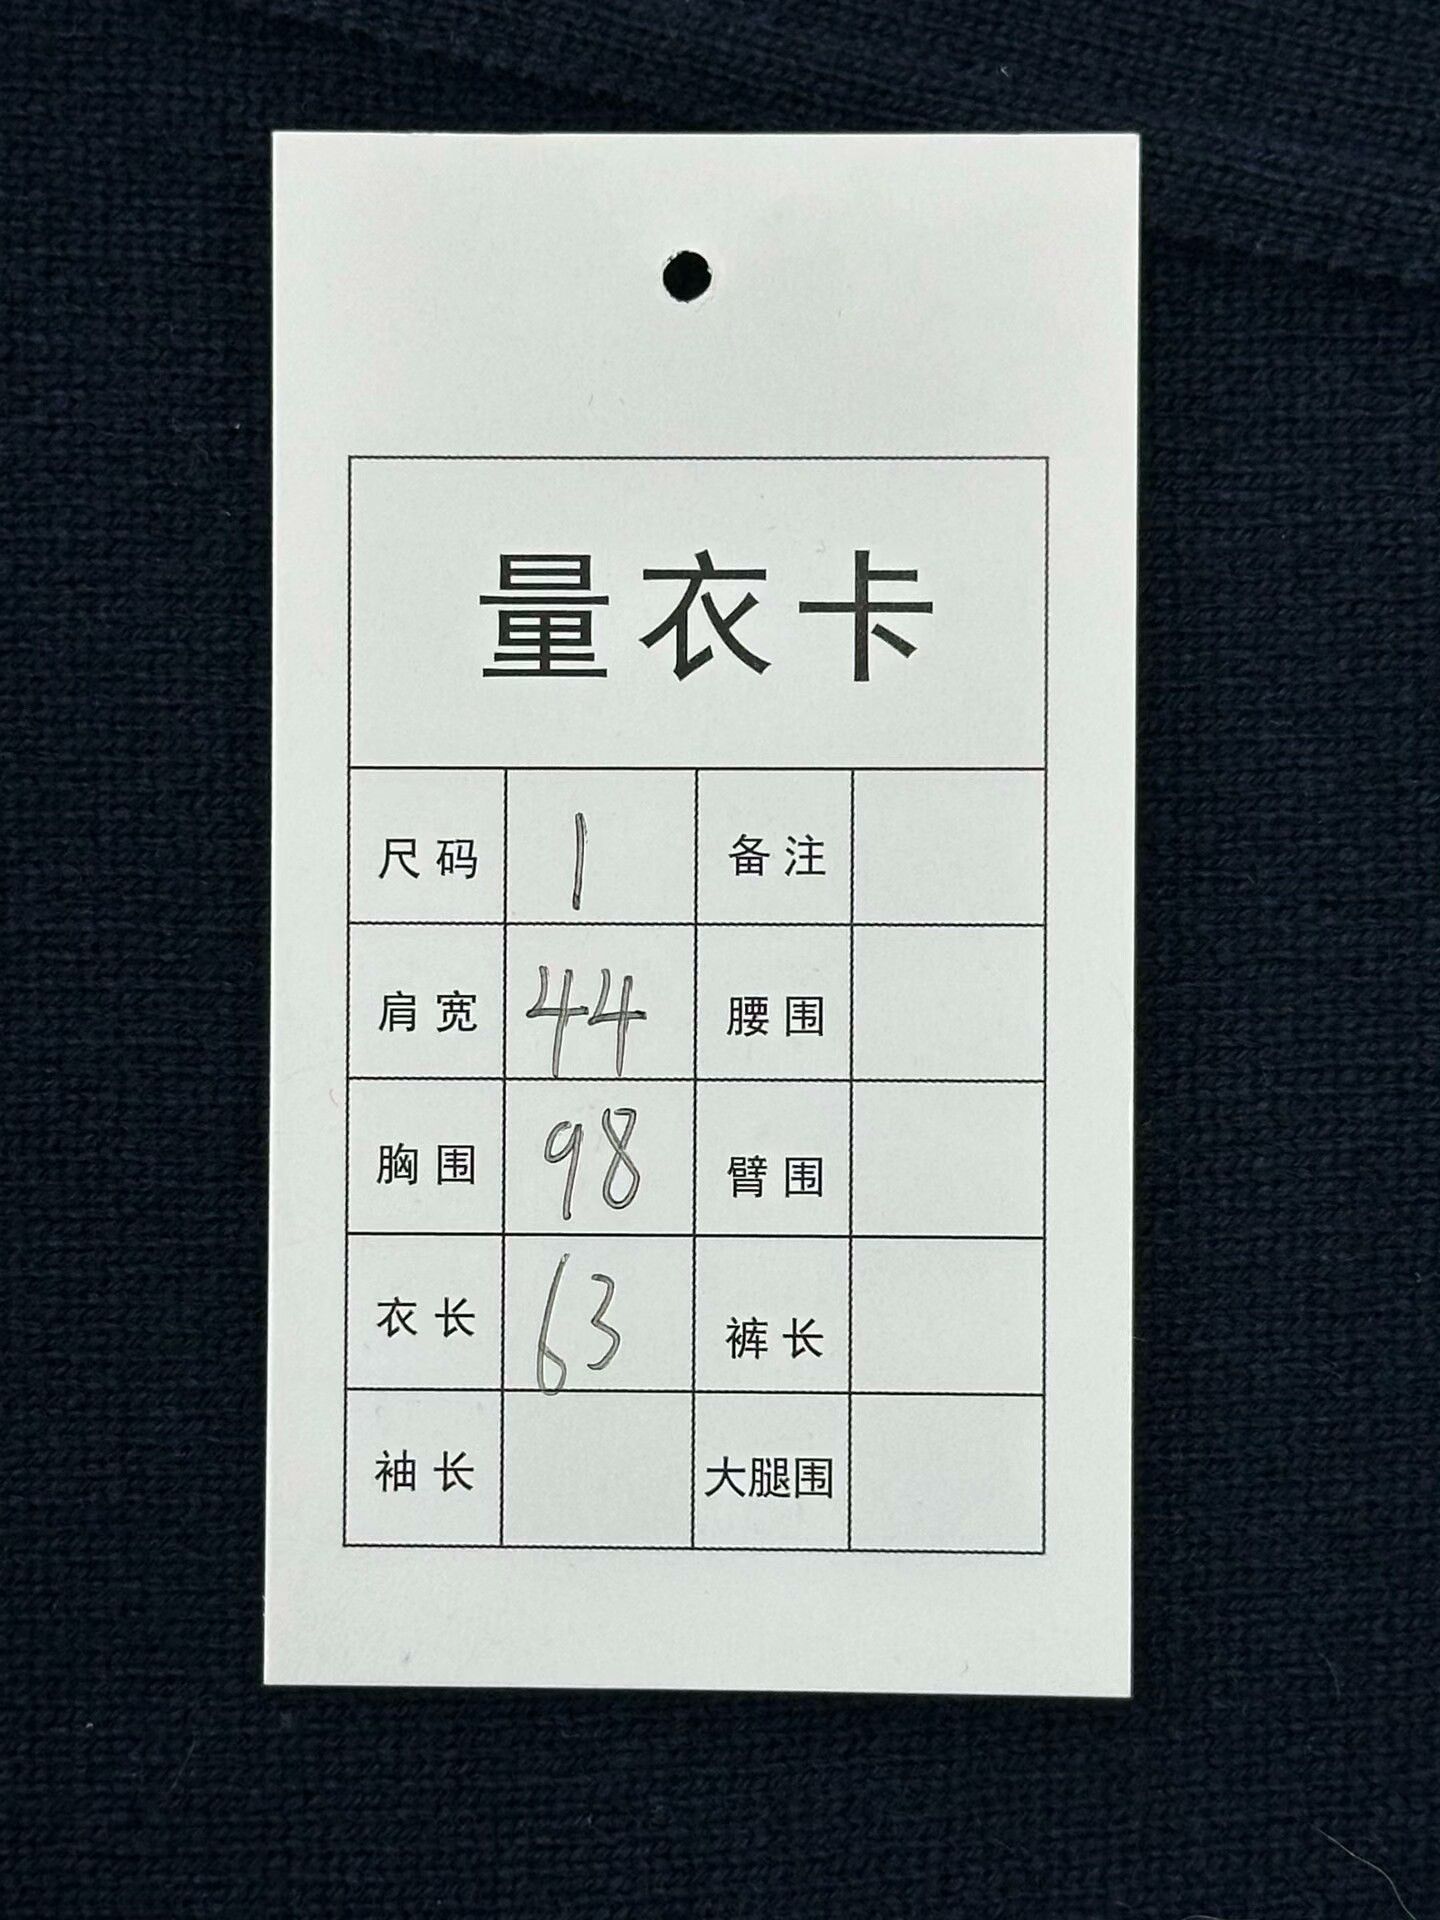 量衣卡
尺码 1 备注
肩宽 44 腰围
胸围 98 臂围
衣长 63 裤长
袖长 大腿围